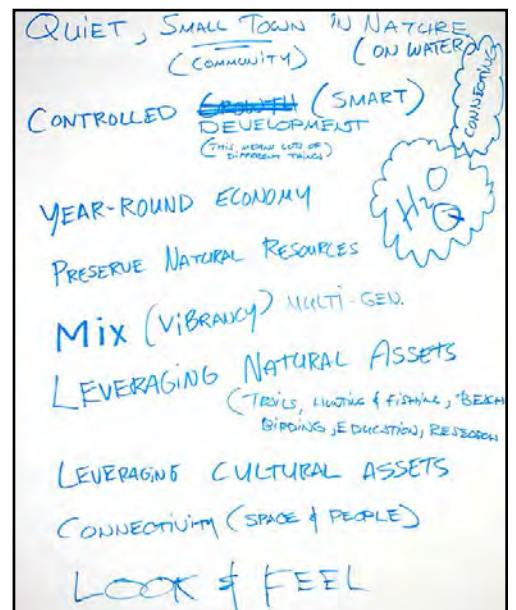 QUIET, SMALL TOWN IN NATURE
(COMMUNITY) (ON WATER)
CONNECTING
CONTROLLED GROWTH (SMART)
DEVELOPMENT
(THIS MEANS LOTS OF
DIFFERENT THINGS)
H2O
YEAR-ROUND ECONOMY
PRESERVE NATURAL RESOURCES
MIX (VIBRANCY) MULTI-GEN.
LEVERAGING NATURAL ASSETS
(TRAILS, HUNTING & FISHING, BEACH
BIRDING, EDUCATION, RESEARCH
LEVERAGING CULTURAL ASSETS
CONNECTIVITY (SPACE & PEOPLE)
LOOK & FEEL